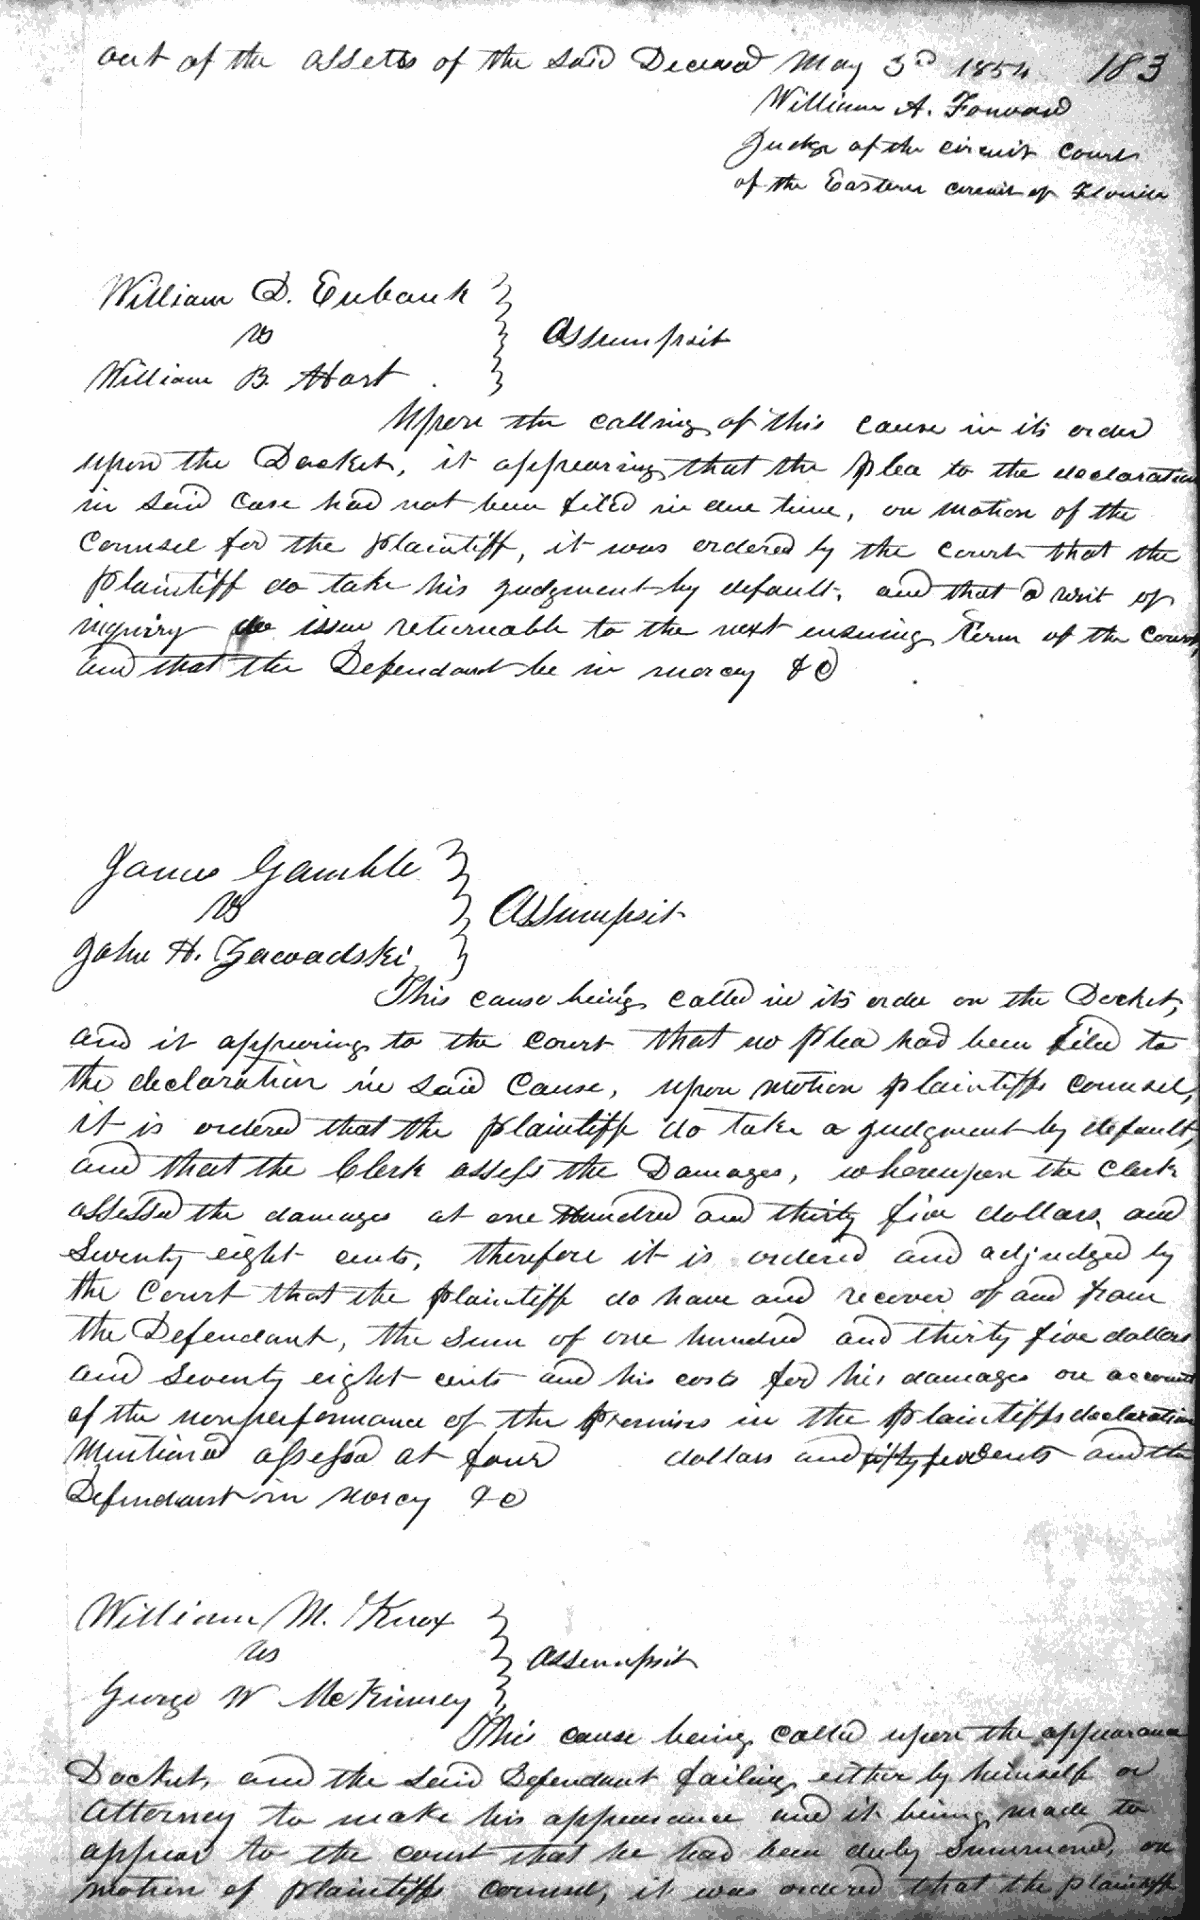 out of the assetts of the said Deceased May 3rd 1854 183
William A. Forward
Judge of the circuit Court
of the Eastern circuit of Florida
William D. Eubank
vs
Assumpsit
William B. Hart
Upon the calling of this cause in its order
upon the Docket, it appearing that the plea to the declaration
in said case had not been filed in due time, on motion of the
Counsel for the plaintiff, it was ordered by the court that the
plaintiff do take his judgment by default, and that a writ of
inquiry do issue returnable to the next ensuing term of the Court,
and that the Defendant be in mercy &c
James Gamble
vs
Assumpsit
John H. Zawadski
This cause being called in its order on the Docket,
and it appearing to the court that no plea had been filed to
the declaration in said Cause, upon motion plaintiffs counsel,
it is ordered that the plaintiff do take a judgment by default,
and that the Clerk assess the Damages, whereupon the clerk
assessed the damages at one Hundred and thirty five dollars and
seventy eight cents, therefore it is ordered and adjudged by
the Court that the plaintiff do have and recover of and from
the Defendant, the sum of one hundred and thirty five dollars
and seventy eight cents and his costs for his damages on account
of the nonperformance of the premises in the plaintiffs declaration
mentioned assessed at four dollars and cents and the
Defendant in mercy &c
William M. Knox
vs
Assumpsit
George W McKinney
This cause being called upon the appearance
Docket, and the said Defendant failing either by himself or
Attorney to make his appearance and it being made to
appear to the court that he had been duly summoned, on
motion of plaintiffs counsel, it was ordered that the plaintiff